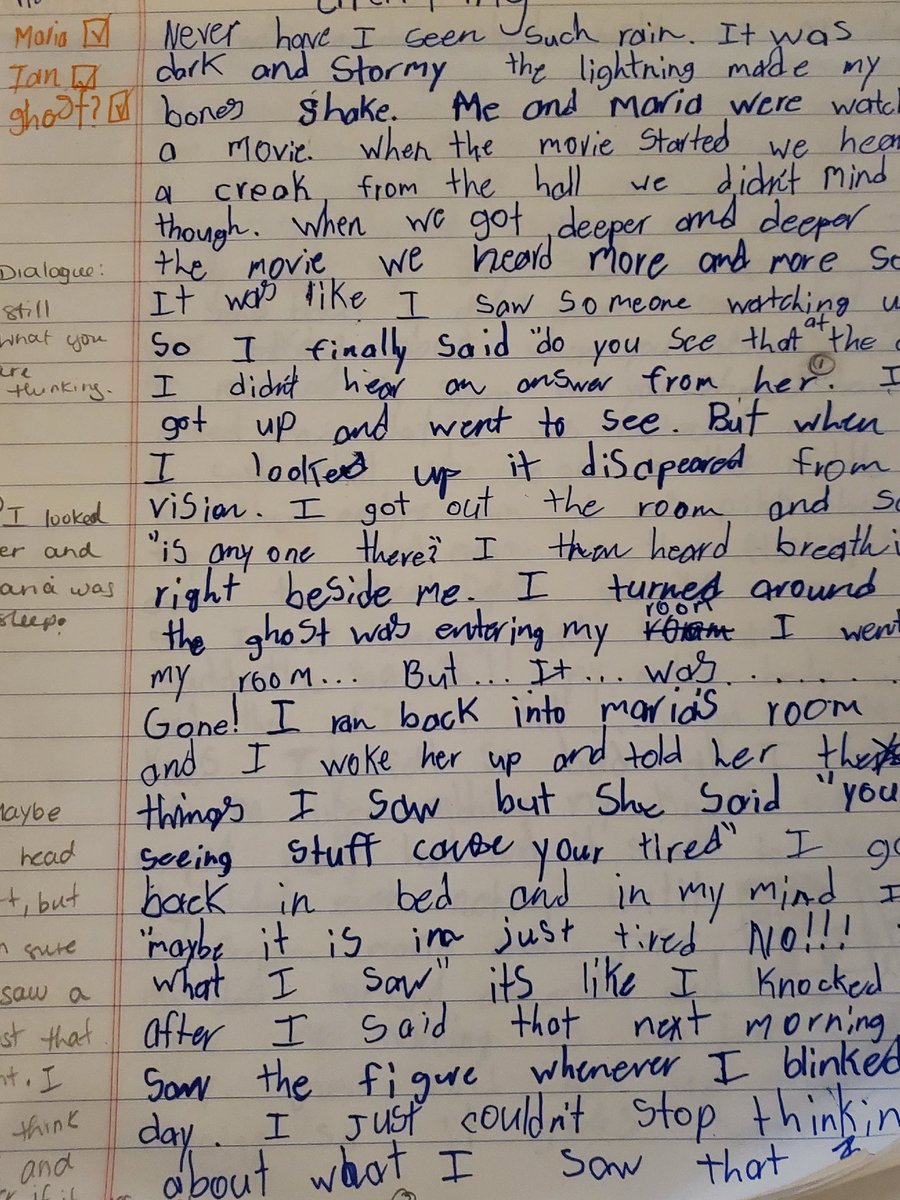 Maria
Ian
ghost?
Never have I seen such rain. It was
dark and stormy the lightning made my
bones shake. Me and maria were watch
a movie. when the movie started we hear
a creak from the hall we didn't mind
though. when we got deeper and deeper
the movie we heard more and more so
It was like I saw someone watching u
So I finally said "do you see that at the
I didn't hear an answer from her. I
got up and went to see. But when
I looked up it disapeared from
vision. I got out the room and sa
"is any one there?" I then heard breathi
right beside me. I turned around
the ghost was entering my room I went
my room... But... It... was........
Gone! I ran back into maria's room
and I woke her up and told her the
things I saw but she said "you
seeing stuff cause your tired" I go
back in bed and in my mind I
"maybe it is im just tired NO!!!
what I saw" its like I knocked
after I said that next morning
saw the figure whenever I blinked
day. I just couldn't stop thinkin
about what I saw that
Dialogue:
still
what you
are
thinking.
I looked
er and
aria was
sleep.
Maybe
head
t, but
sure
saw a
st that
nt. I
think
and